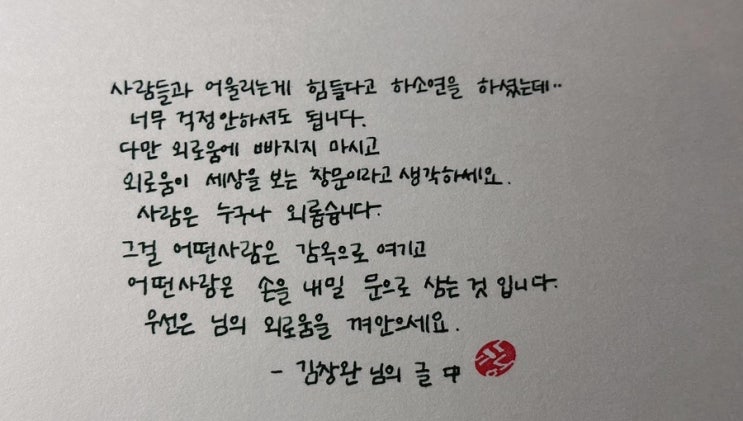 사람들과 어울리는게 힘들다고 하소연을 하셨는데..
너무 걱정안하셔도 됩니다.
다만 외로움에 빠지지 마시고
외로움이 세상을 보는 창문이라고 생각하세요.
사람은 누구나 외롭습니다.
그걸 어떤사람은 감옥으로 여기고
어떤사람은 손을 내밀 문으로 삼는 것 입니다.
우선은 님의 외로움을 껴안으세요.
- 김창완 님의 글 中